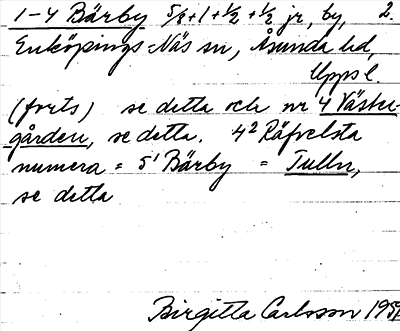 1-4 Bärby 5/8+1+1/2+1/2 jr, by, 2.
Enköpings-Näs sn, Åsunda hd,
Upps l.
(forts) se detta och nr 4 Väster-
gården, se detta. 4² Räfvelsta
numera = 5¹ Bärby = Tuller,
se detta
Birgitta Carlsson 1959